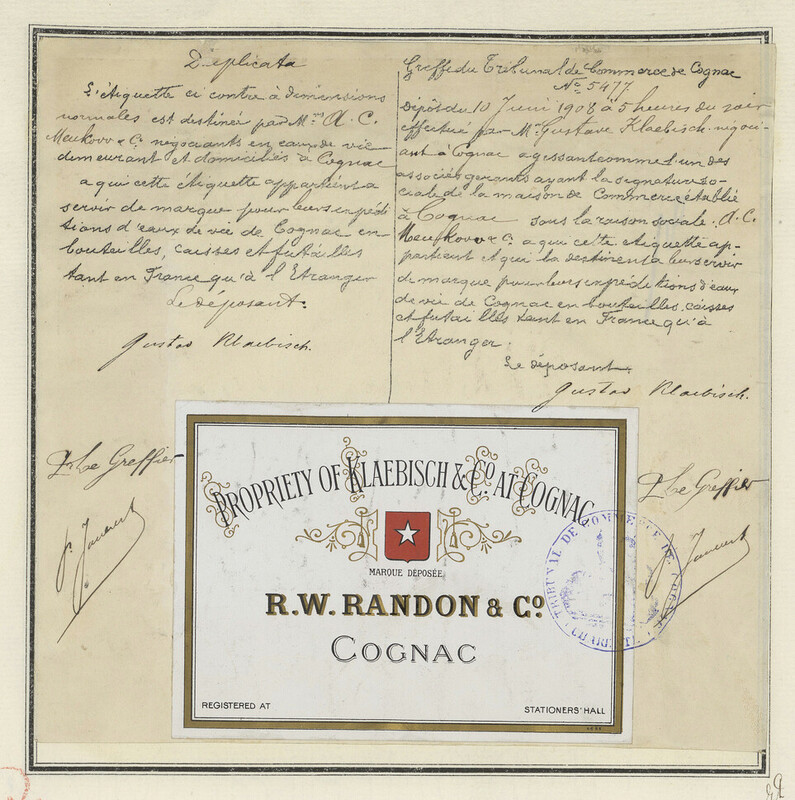 Duplicata
L'étiquette ci contre à dimensions
normales est destinée par Mrs A. C.
Meukow & Co négociants en eaux de vie
demeurant et domiciliés à Cognac
a qui cette étiquette appartient a
servir de marque pour leurs expédi-
tions d'eaux de vie de Cognac en
bouteilles, caisses et futailles
tant en France qu'à l'Etranger
Le déposant.
Gustav Klaebisch.
Greffe du Tribunal de Commerce de Cognac
No 5477
Dépôt du 10 Juin 1908 à 5 heures du soir
effectué par Mr Gustave Klaebisch négoci-
ant à Cognac agissant comme l'un des
associés gérants ayant la signature so-
ciale de la maison de Commerce établie
à Cognac sous la raison sociale A. C.
Meukow & Co a qui cette étiquette ap-
partient et qui la destinent a leur servir
de marque pour leurs expéditions d'eaux
de vie de Cognac en bouteilles, caisses
et futailles tant en France qu'à
l'Etranger.
Le déposant
Gustav Klaebisch.
Pr Le Greffier
Pr Le Greffier
PROPRIETY OF KLAEBISCH & Co. AT COGNAC
MARQUE DÉPOSÉE
R.W. RANDON & Co
COGNAC
REGISTERED AT
STATIONERS' HALL
TRIBUNAL DE COMMERCE DE COGNAC
CHARENTE